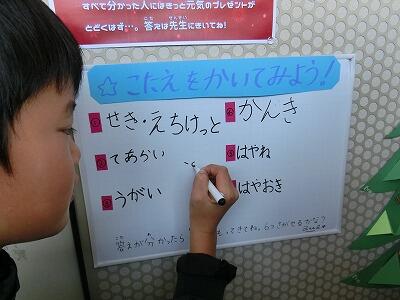 すべて分かった人にはきっと元気のプレゼントが
とどくはず…。答えは先生にきいてね!
☆こたえをかいてみよう!
①せき・えちけっと
②てあらい
③うがい
④かんき
⑤はやね
はやおき
答えが分かったら
もってきてね。6つさがせるかな?